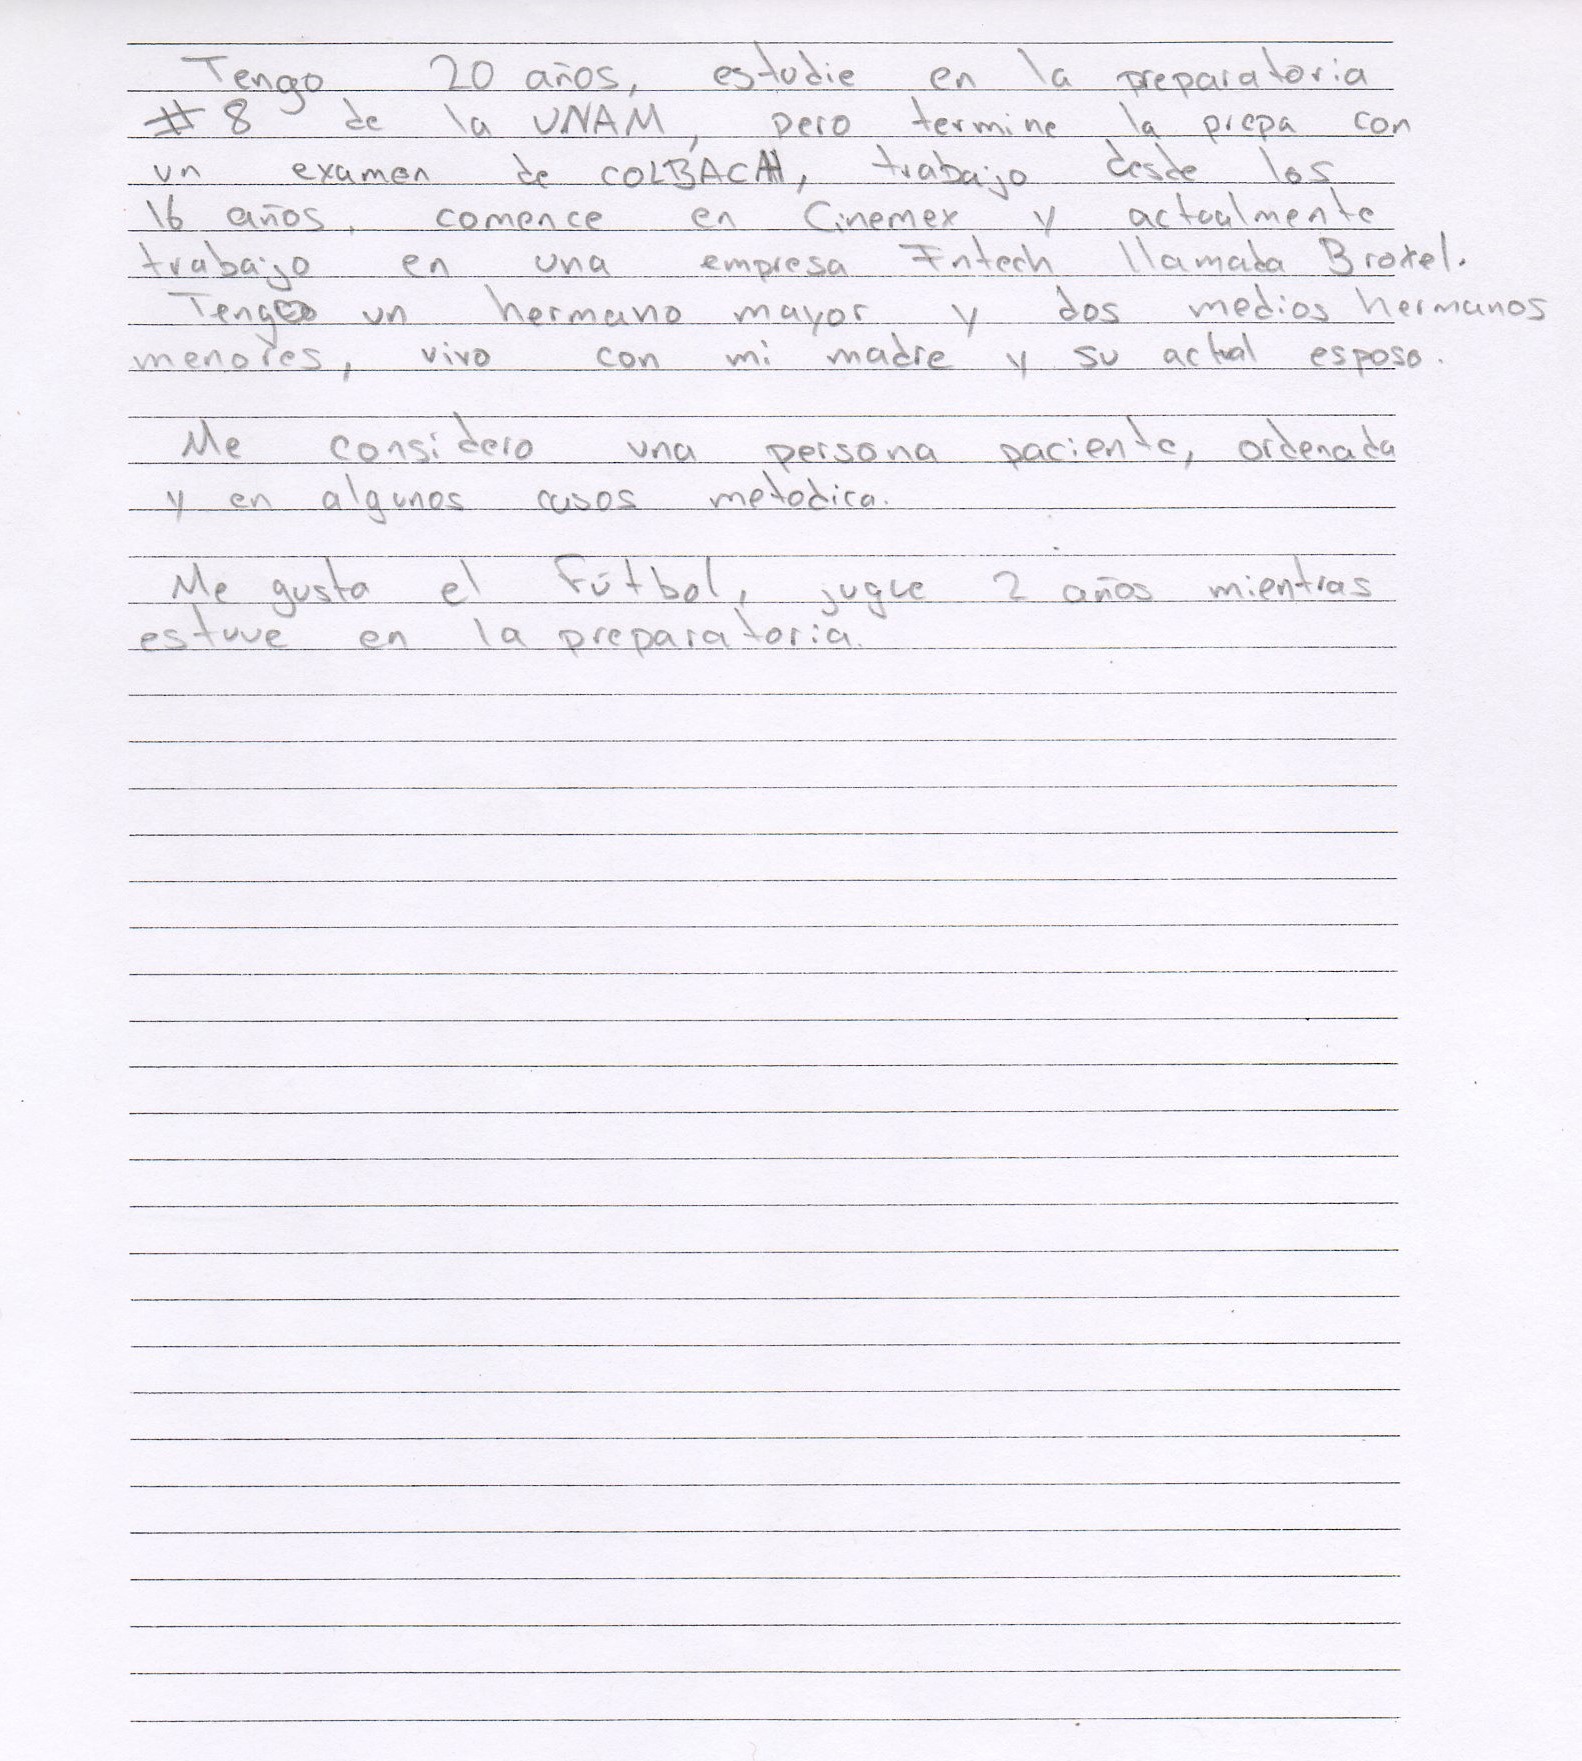 Tengo 20 años, estudie en la preparatoria
# 8 de la UNAM, pero termine la prepa con
un examen de COLBACH, trabajo desde los
16 años, comence en Cinemex y actualmente
trabajo en una empresa Fntech llamada Broxel.
Tengo un hermano mayor y dos medios hermanos
menores, vivo con mi madre y su actual esposo.
Me considero una persona paciente, ordenada
y en algunos casos metodica.
Me gusta el fútbol, jugue 2 años mientras
estuve en la preparatoria.